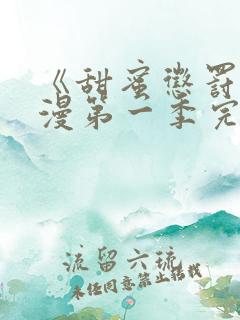 《甜蜜惩罚
漫第一季完
流留六琉
未经同意禁止转载